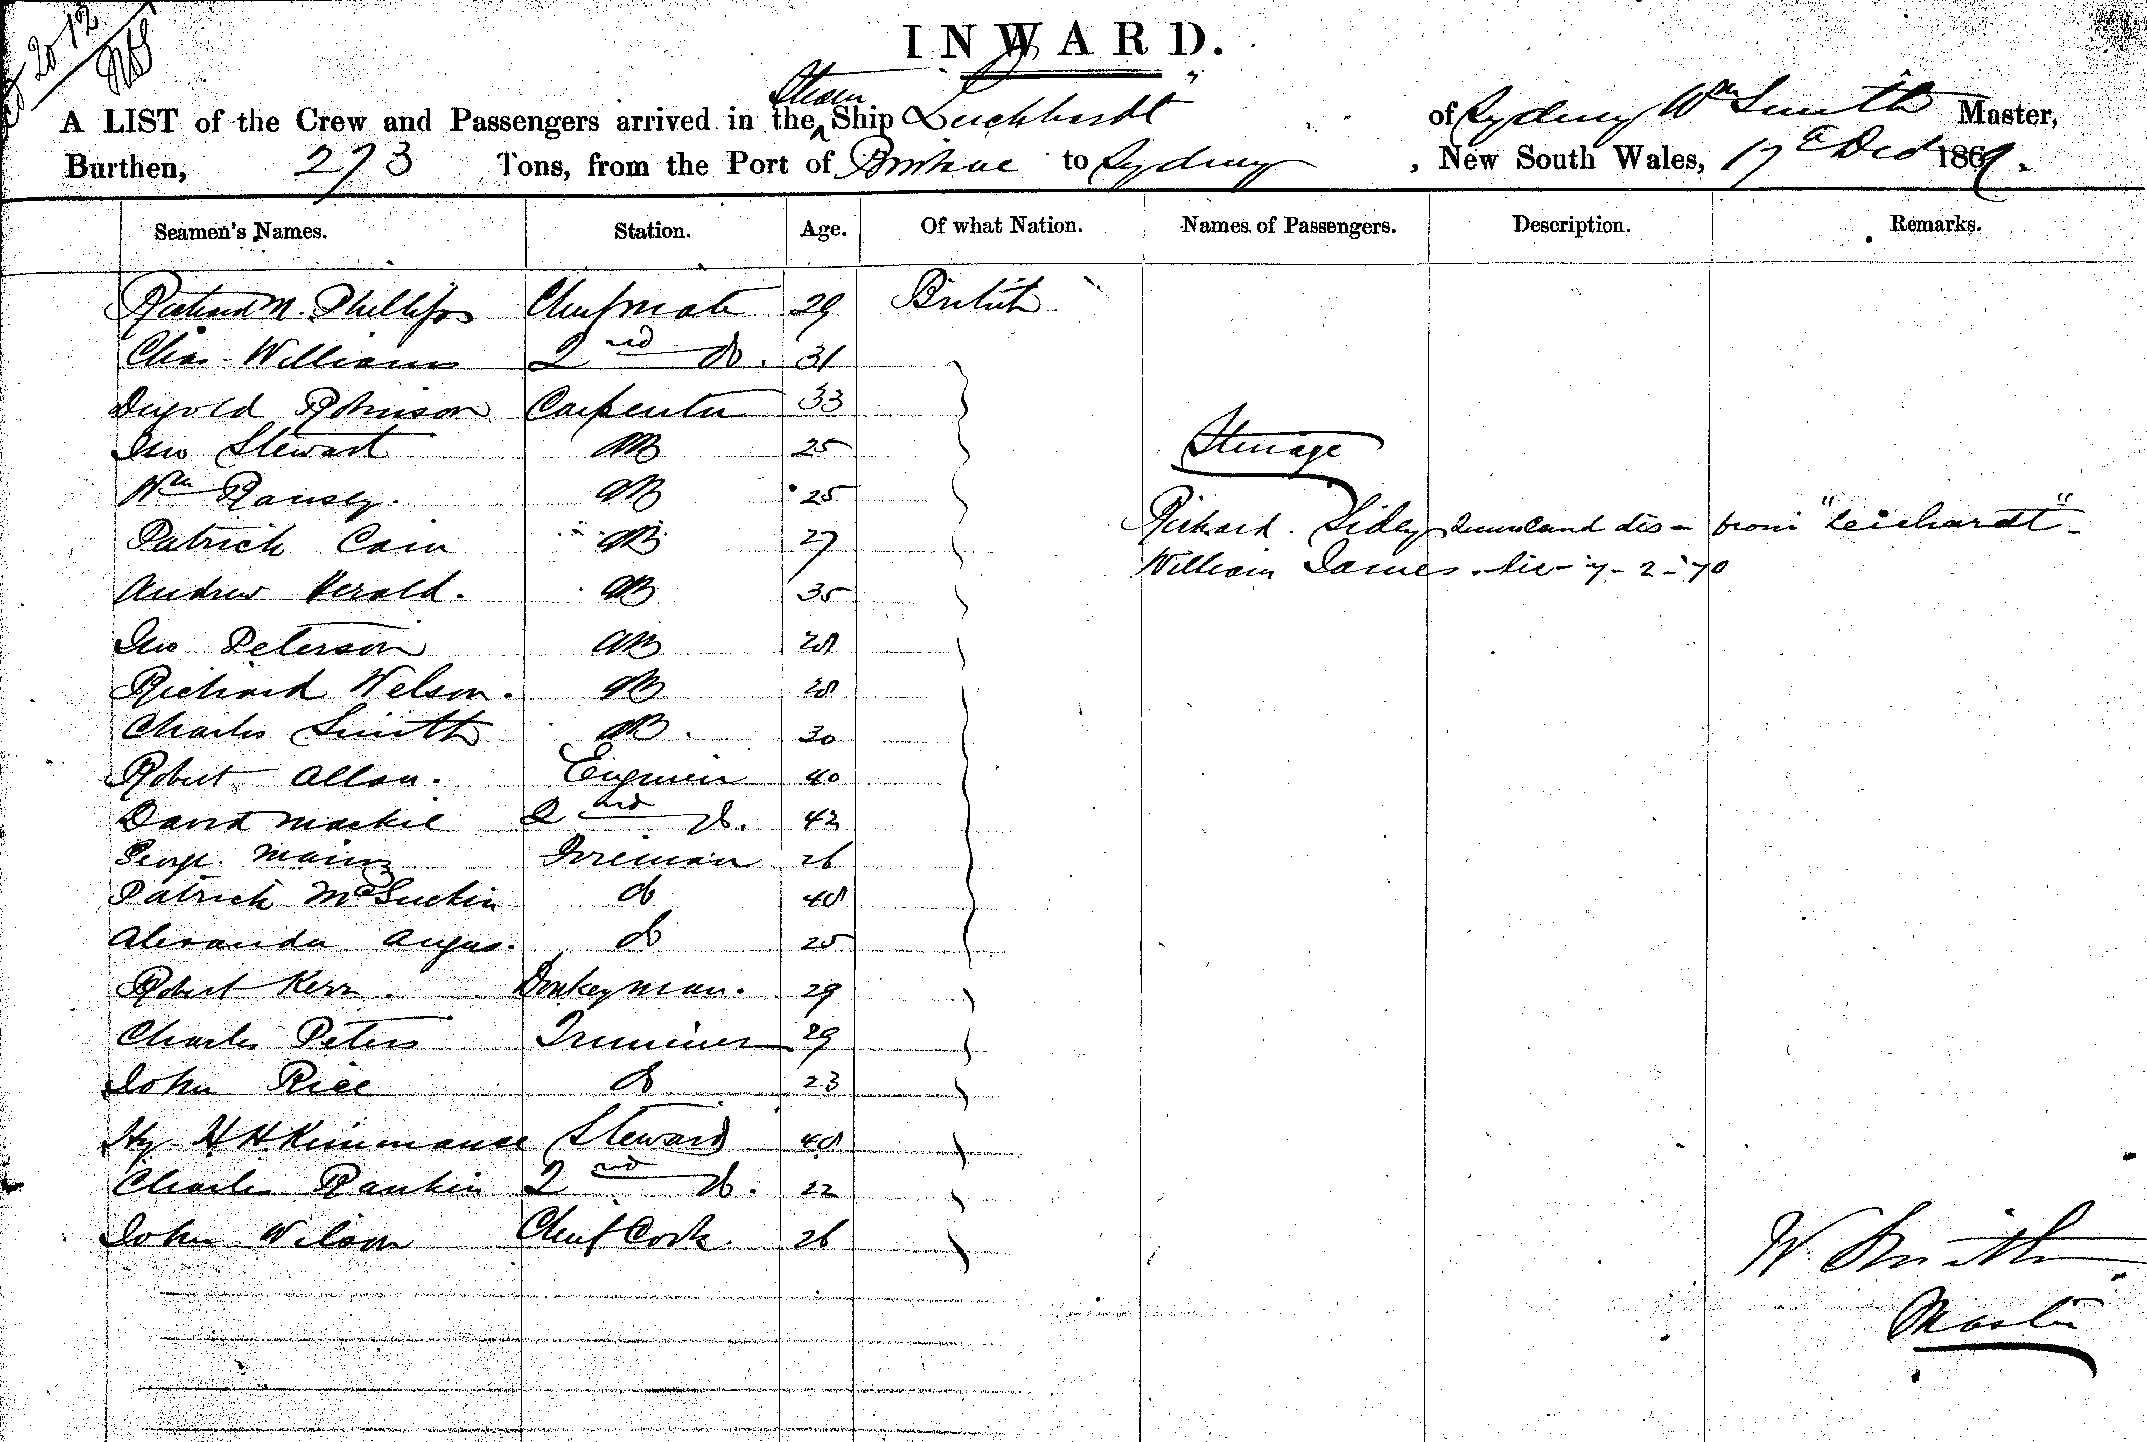 20 12
INWARD.
A LIST of the Crew and Passengers arrived in the Steam Ship Leichhardt" of Sydney Wm Smith Master,
Burthen, 273 Tons, from the Port of Brisbane to Sydney, New South Wales, 17th Decr 1869.
Seamen's Names. Station. Age. Of what Nation. Names of Passengers. Description. Remarks.
Richard M. Phillips Chief mate 29 British
Chas Williams 2nd do. 31
Dugold Robinson Carpenter 33
Jno Stewart AB 25 Steerage
Wm Ramsey. AB 25
Patrick Cain AB 27 Richard Sidey Queensland dis - from "Leichardt" -
Andrew Herald. AB 35 William James - dis - 7 - 2 - 70
Jno Peterson AB 28
Richard Nelson. AB 28
Charles Smith AB. 30
Robert Allan. Engineer 40
David Mackie 2nd do. 42
George Main Fireman 26
Patrick McGuckin do 48
Alexander Angus. do 25
Robert Kerr Donkeyman. 29
Charles Peters Trimmer 29
John Rice do 23
Hy H H Kimmance Steward 48
Charles Rankin 2nd do. 22
John Wilson Chief Cook. 26
W Smith
Master